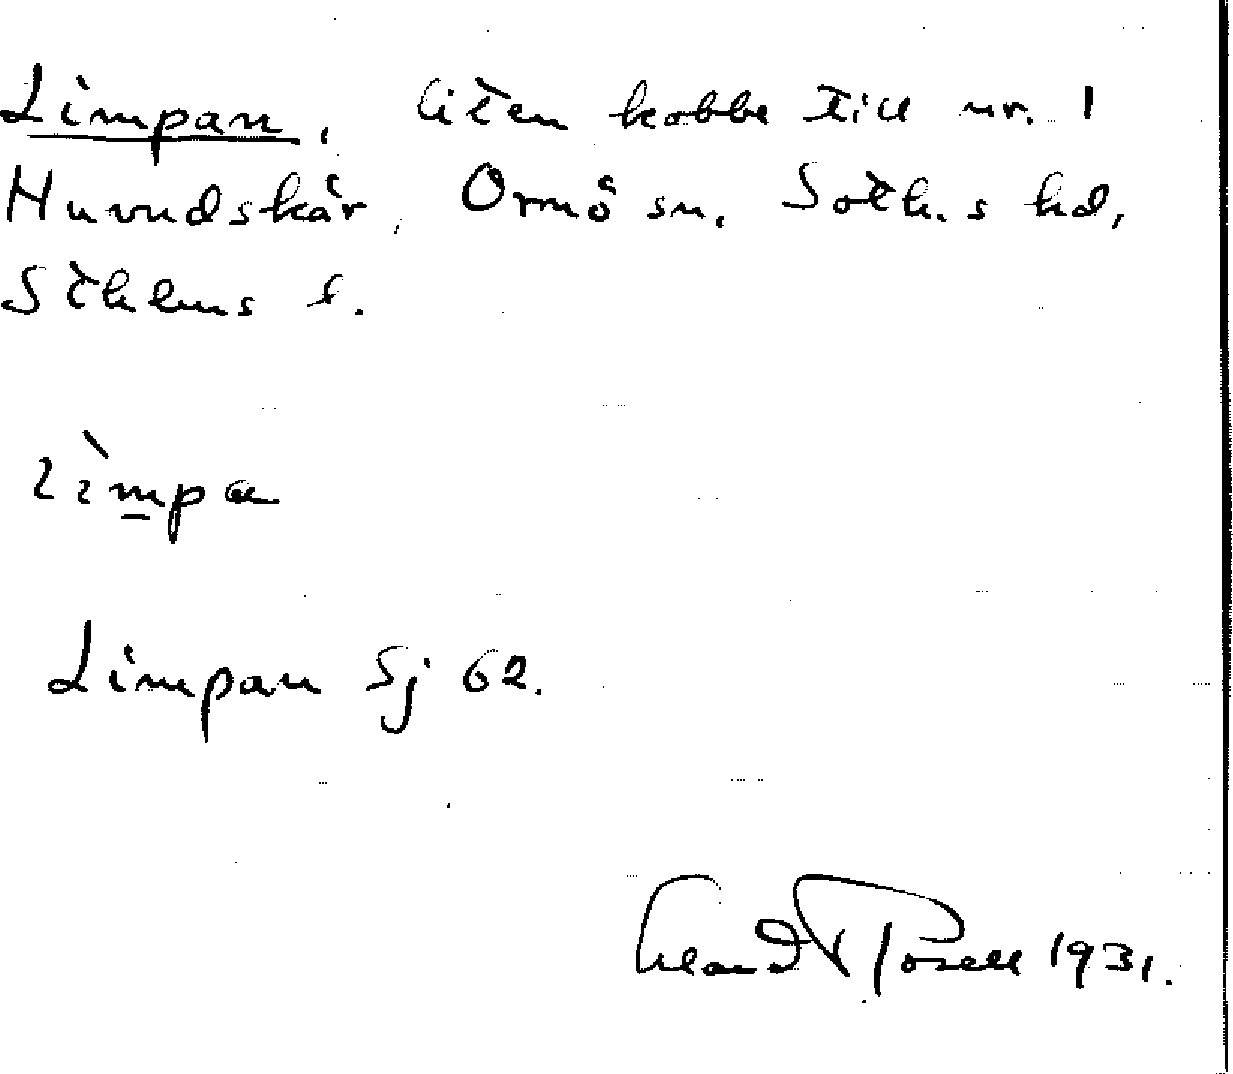 Limpan, liten kobbe till nr. 1
Huvudskär, Ornö sn. Soth.s hd,
Sthlms l.
lìmpa
Limpan Sj 62.
Erland Rosell 1931.